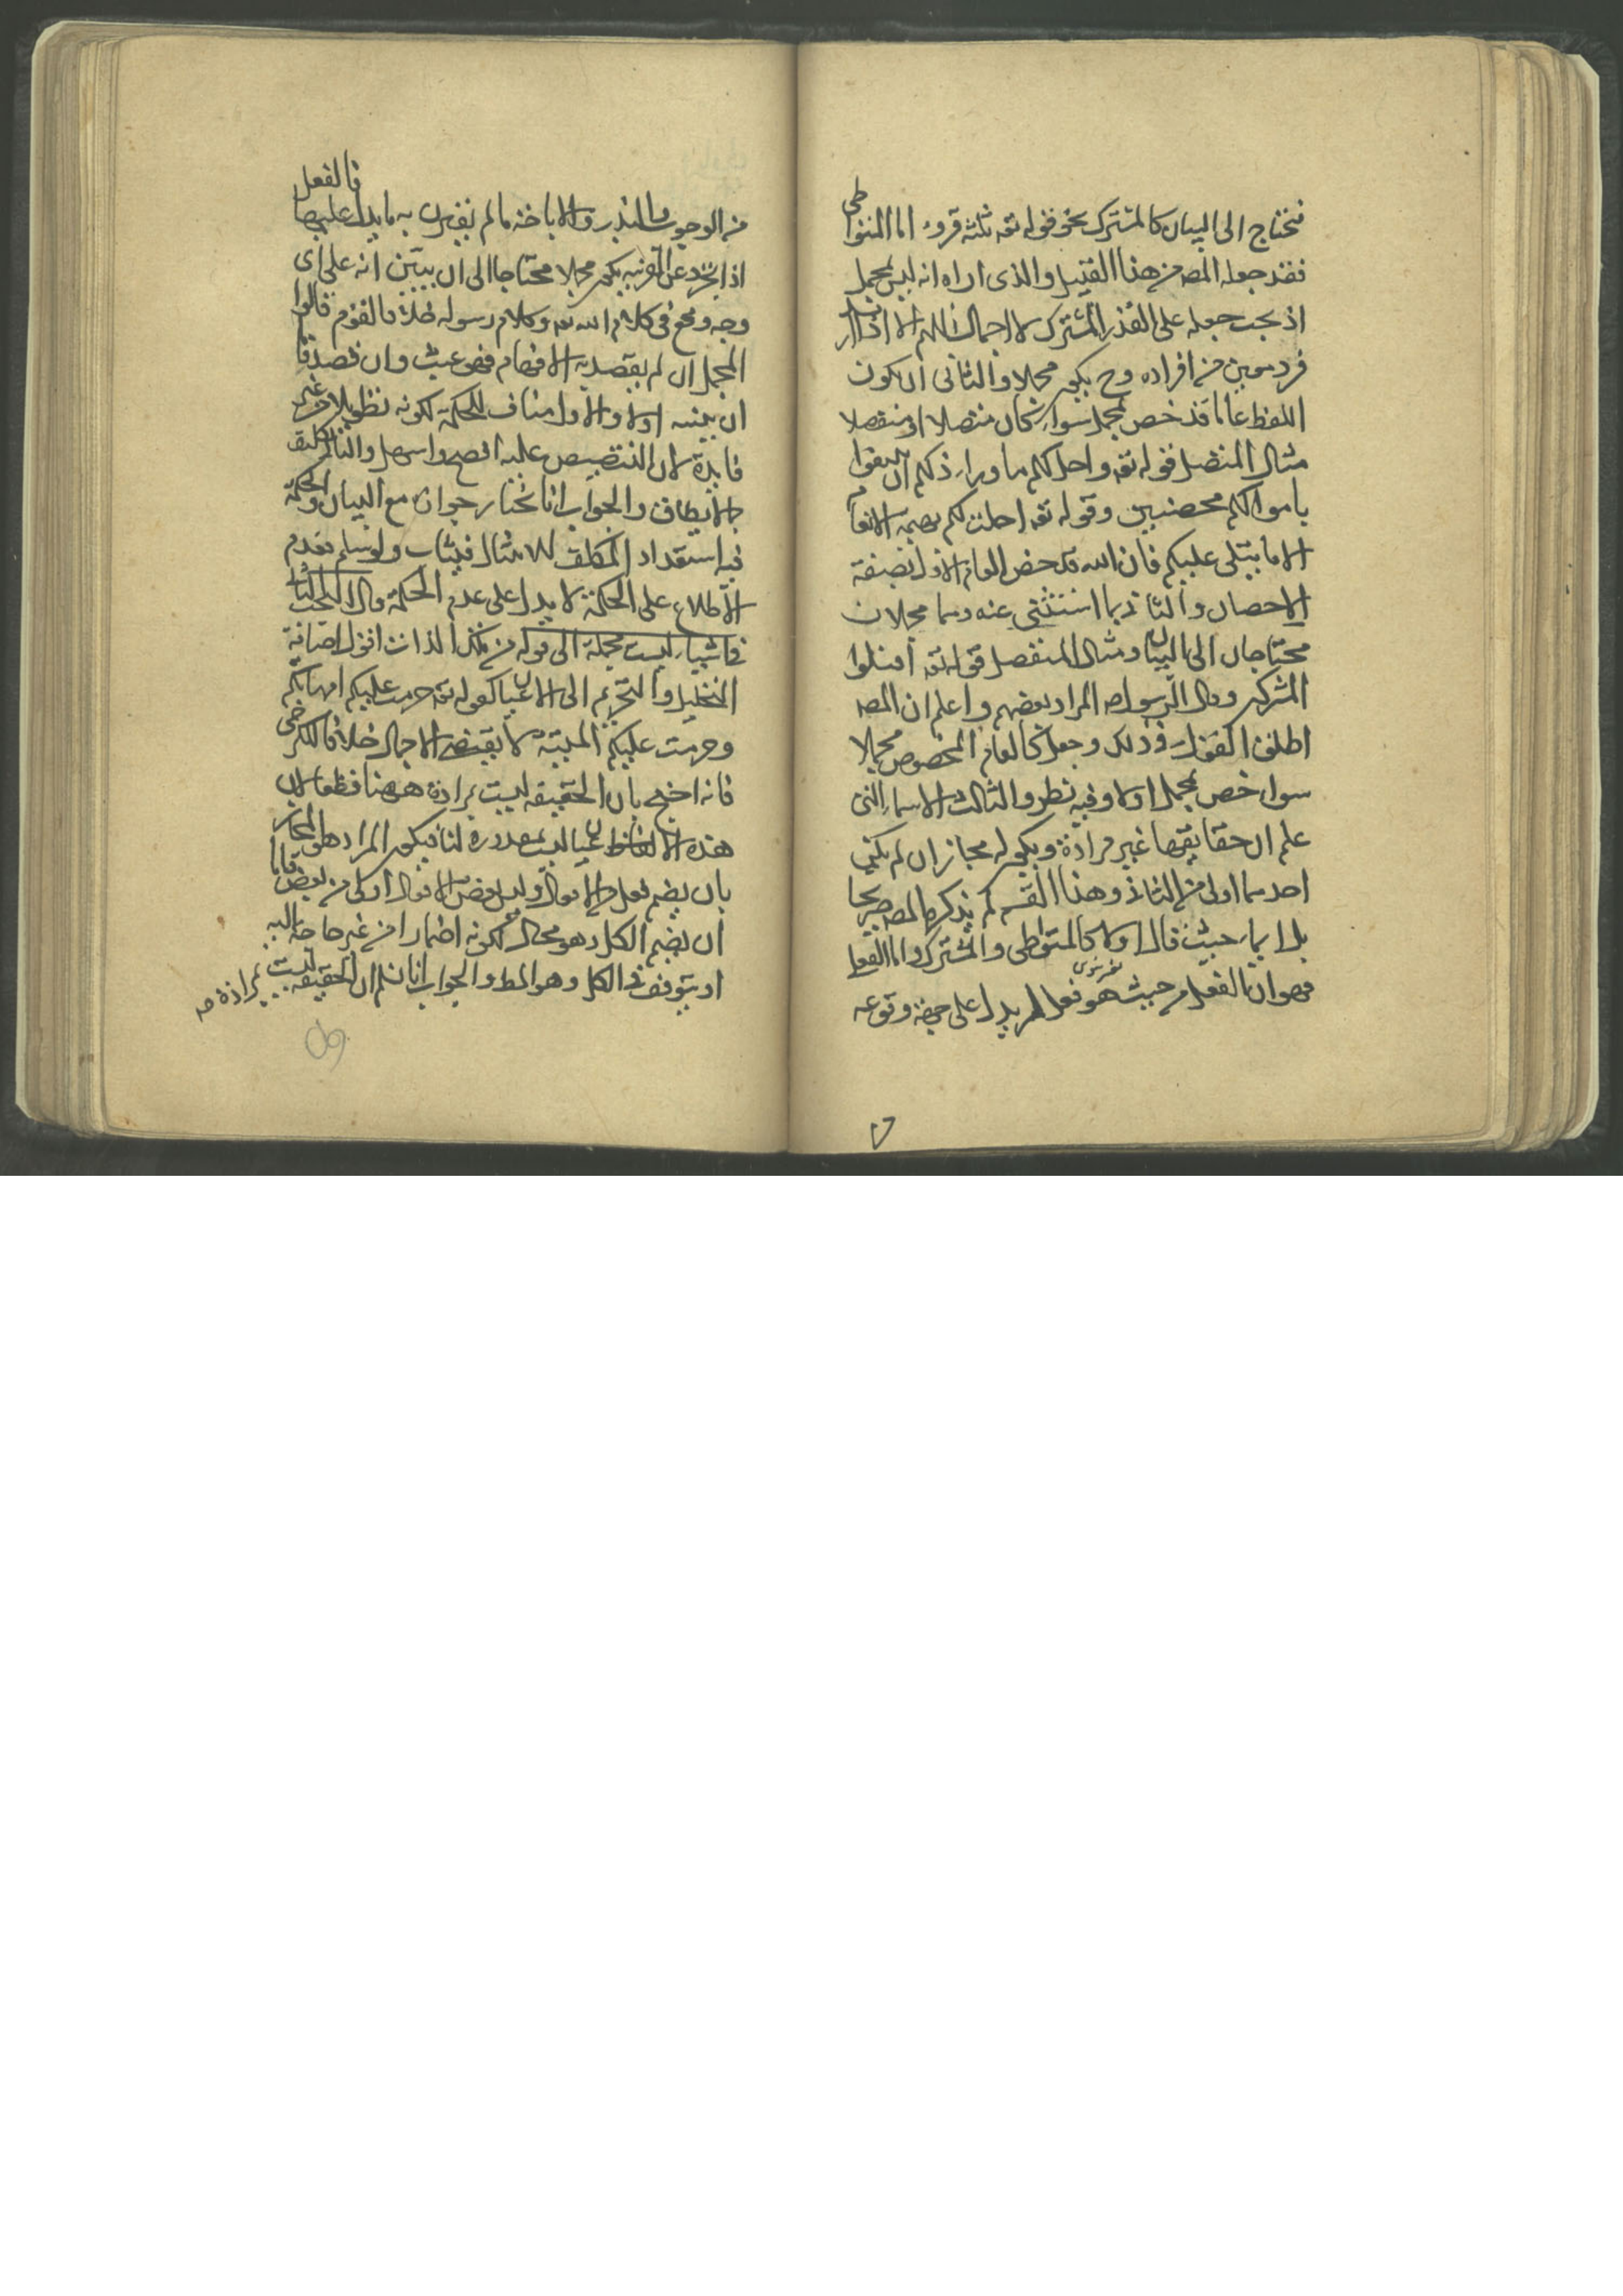 فتحتاج الى البيان كالمشترك نحو قوله تعه ثلثة قروء اما المتواطى
فقد جعله المصـ من هذا القبيل والذى اراه انه ليس بمجمل
اذ يجب حمله على القدر المشترك لا اجمال اللهم الا اذا اراد
فرد معين من افراده وح يكون مجملا والثانى ان يكون
اللفظ عاما قد خص بمجمل سواء كان متصلا او منفصلا
مثال المتصل قوله تعه واحل لكم ما وراء ذلكم ان تبتغوا
باموالكم محصنين وقوله تعه احلت لكم بهيمة الانعام
الا ما يتلى عليكم فان الله قد خص العام الاول بصفة
الاحصان والثانى بما استثنى عنه وهما مجملان
محتاجان الى البيان ومثال المنفصل قوله تعه اقتلوا
المشركين وقال الرسول صـ المراد بعضهم واعلم ان المصـ
اطلق القول فى ذلك وجعل كالعام المخصوص مجملا
سواء خص بمجمل اولا وفيه نظر والثالث الاسماء التى
علم ان حقايقها غير مرادة ويكون له مجازان لم يكن
احدهما اولى من الثانى وهذا القسم لم يذكره المصـ صريحا
بل ايماء حيث قال اولا كالمتواطى والمشترك واما الفعل
فهو ان الفعل من حيث هو فعل لم يدل على جهة وقوعه
من الوجوب والندب والاباحة ما لم يقترن به ما يدل عليها فالفعل
اذا تجرد عن القرينة يكون مجملا محتاجا الى ان يبين انه على اى
وجه وقع فى كلام الله تعه وكلام رسوله خلافا لقوم قالوا
المجمل ان لم يقصد به الافهام فهو عبث وان قصد فاما
ان يبينه اولا والاول مناف للحكمة لكونه تطويلا من غير
فايدة لان التنصيص عليه افصح واسهل والثانى تكليف
بما لا يطاق والجواب انا نختار جوازه مع البيان والحكمة
فيه استعداد المكلف للامتثال فيثاب ولو سلم فعدم
الاطلاع على الحكمة لا يدل على عدم الحكمة قال البحث الثانى
فى اشياء ليست مجملة الى قوله من تلك الذات اقول اضافة
التحليل والتحريم الى الاعيان كقوله تعه حرمت عليكم امهاتكم
وحرمت عليكم الميتة لا يقتضى الاجمال خلافا للكرخى
فانه احتج بان الحقيقة ليست مرادة ههنا قطعا لان
هذه الالفاظ اعيان ليست مقدورة لنا فيكون المراد هو المجاز
بان يضم فعل من الافعال وليس بعض الافعال اولى من بعض فاما
ان يضم الكل وهو محال لكونه اضمارا من غير حاجة اليه
او يتوقف فى الكل وهو المط والجواب انا نسلم ان الحقيقة ليست مرادة